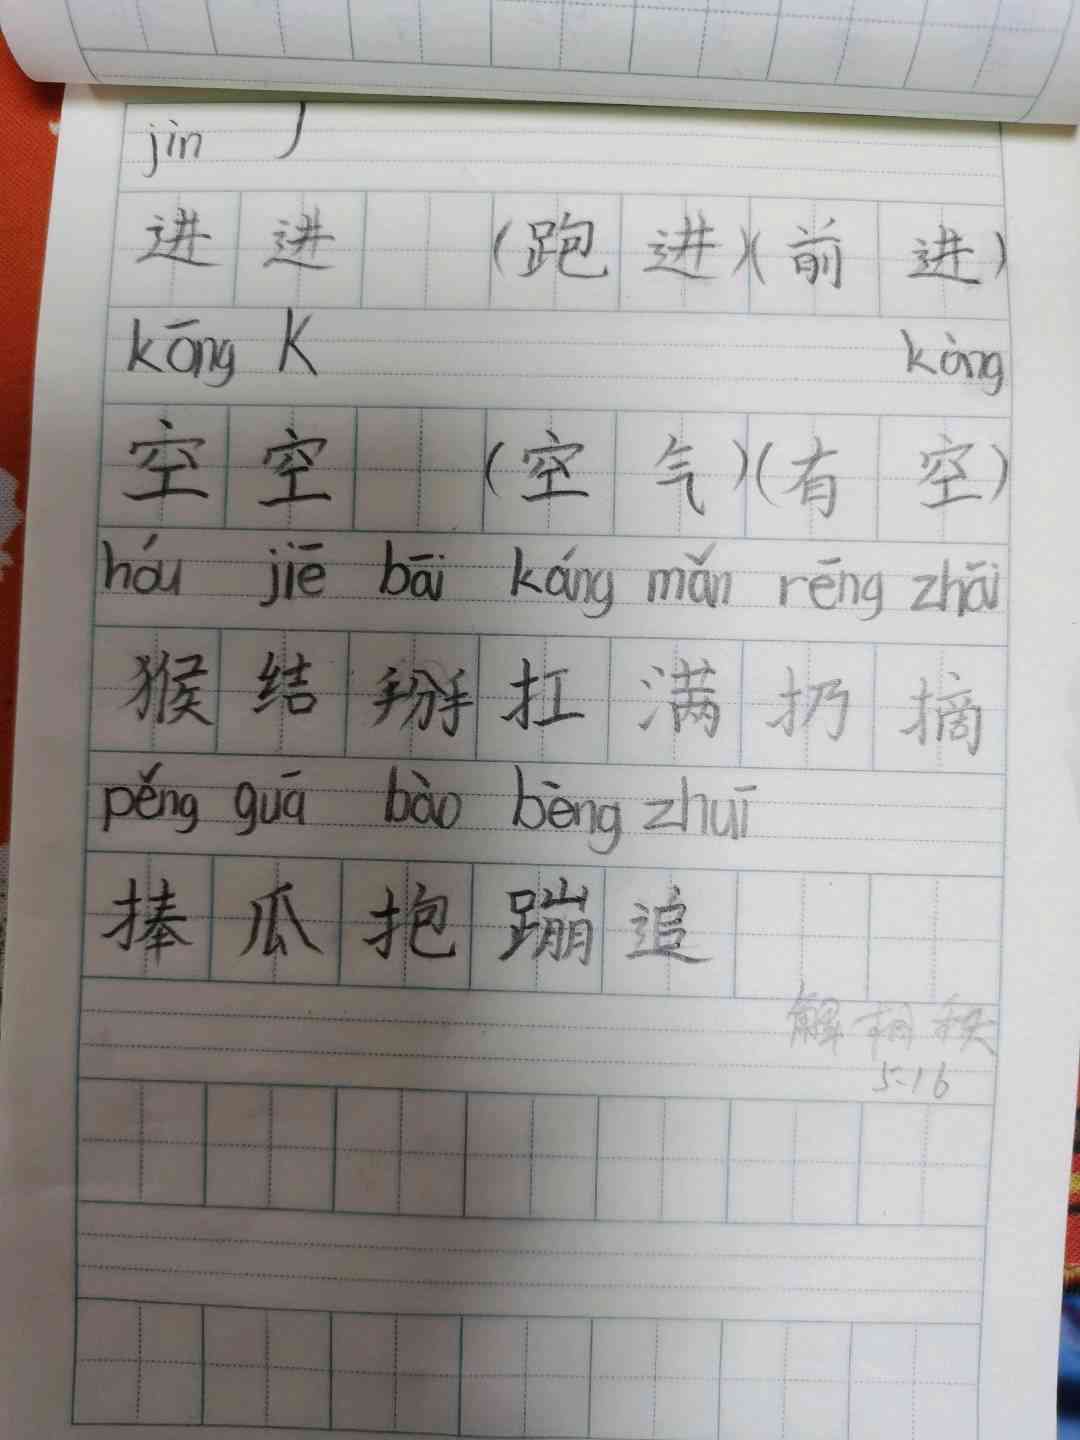 jìn J
进 进 (跑 进)(前 进)
kōng K kòng
空 空 (空 气)(有 空)
hóu jiē bāi káng mǎn rēng zhāi
猴 结 掰 扛 满 扔 摘
pěng guā bào bèng zhuī
捧 瓜 抱 蹦 追
解 桐 秩
5-16